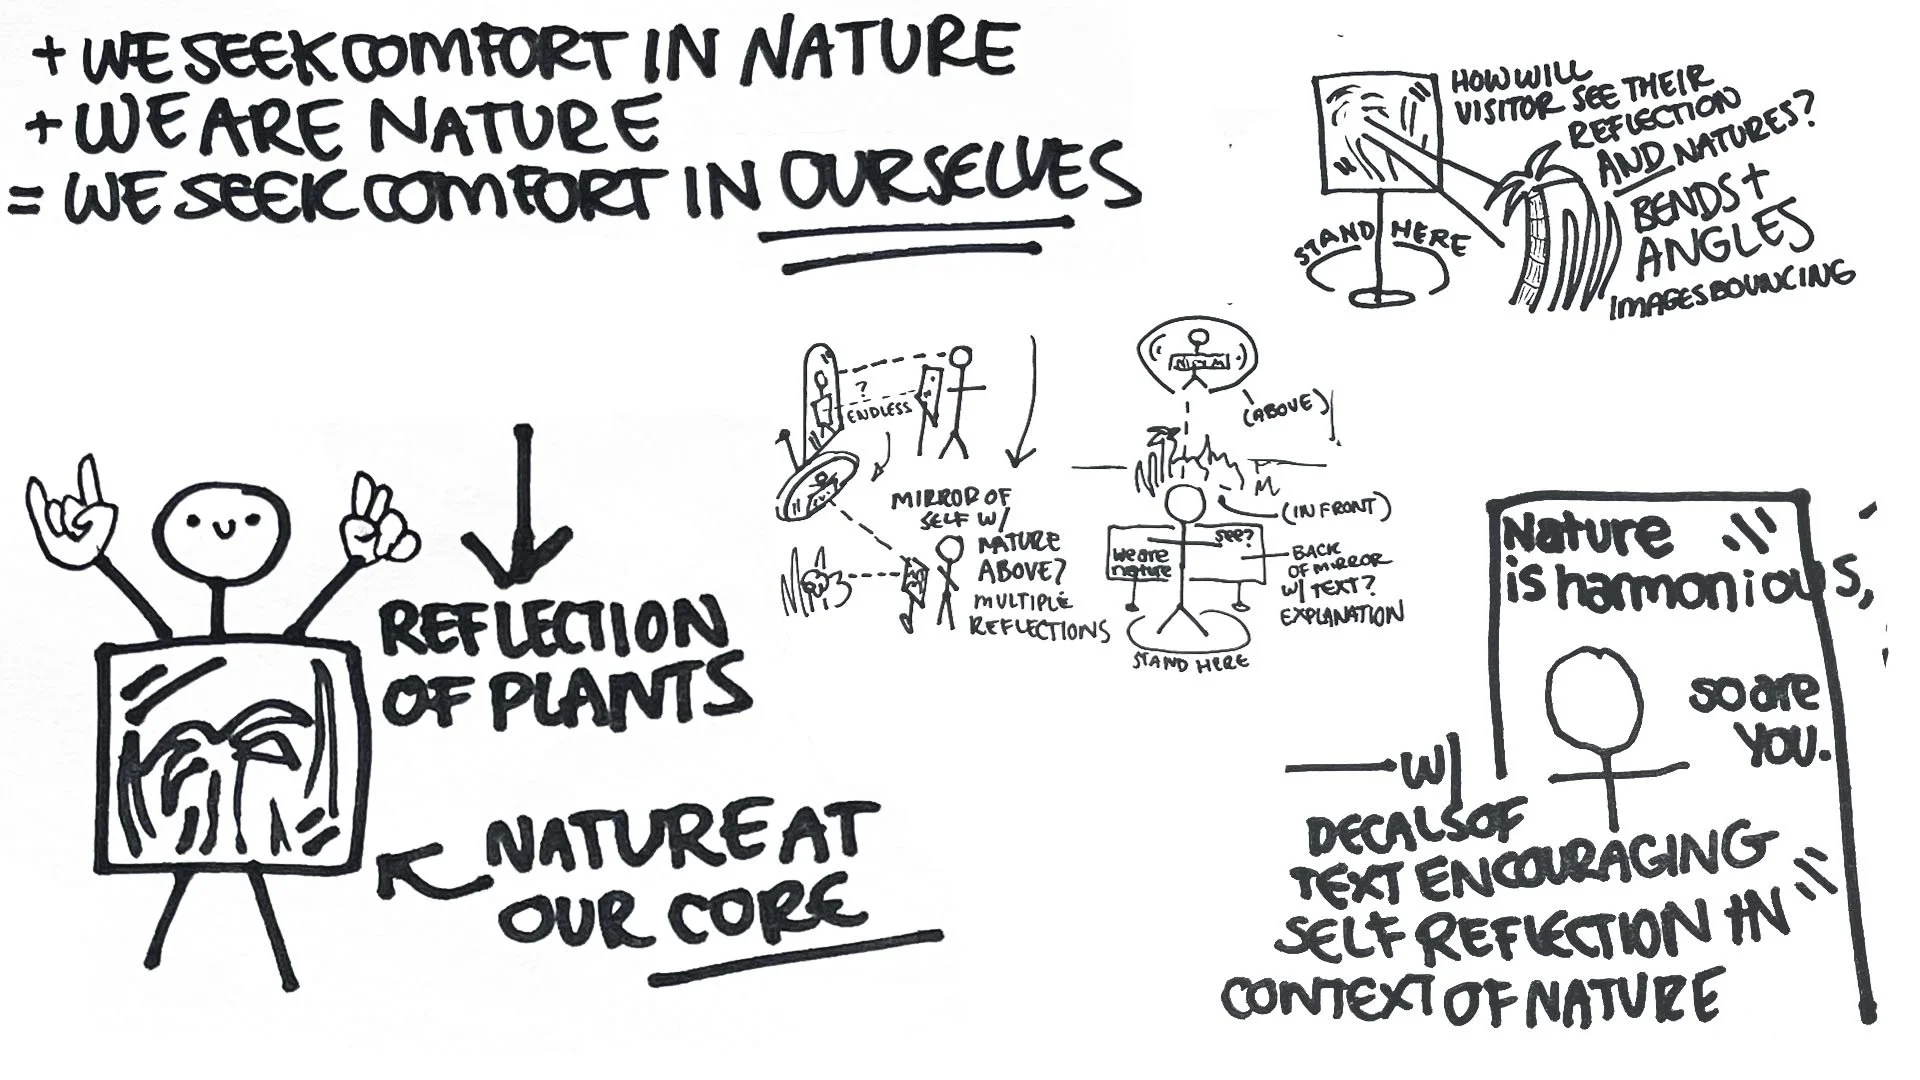 + WE SEEK COMFORT IN NATURE
+ WE ARE NATURE
= WE SEEK COMFORT IN OURSELVES
HOW WILL
VISITOR SEE THEIR
REFLECTION
AND NATURES?
BENDS +
ANGLES
IMAGES BOUNCING
STAND HERE
?
ENDLESS
MIRROR OF
SELF W/
NATURE
ABOVE?
MULTIPLE
REFLECTIONS
(ABOVE)
(IN FRONT)
we are
nature
see?
BACK
OF MIRROR
W/ TEXT?
EXPLANATION
STAND HERE
REFLECTION
OF PLANTS
NATURE AT
OUR CORE
Nature
is harmonious,
so are
YOU.
W/
DECALS OF
TEXT ENCOURAGING
SELF REFLECTION IN
CONTEXT OF NATURE